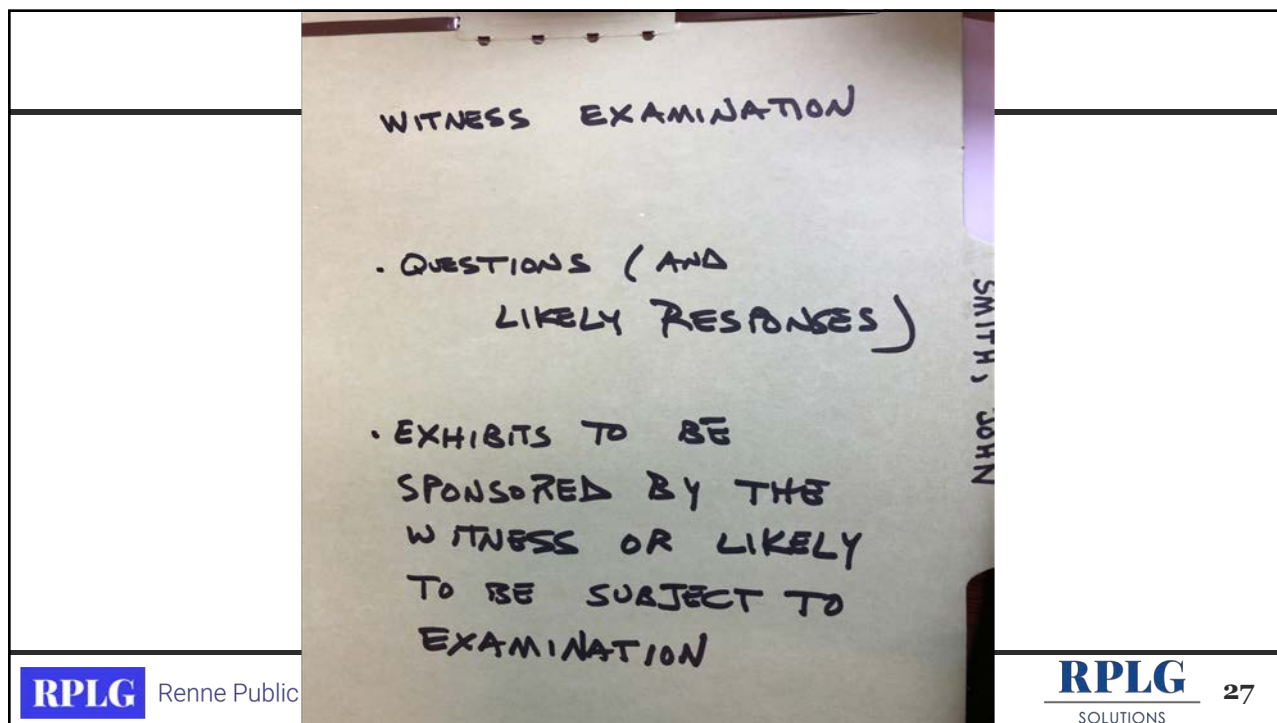 WITNESS EXAMINATION
• QUESTIONS (AND
LIKELY RESPONSES)
• EXHIBITS TO BE
SPONSORED BY THE
WITNESS OR LIKELY
TO BE SUBJECT TO
EXAMINATION
SMITH, JOHN
RPLG Renne Public
RPLG
SOLUTIONS
27